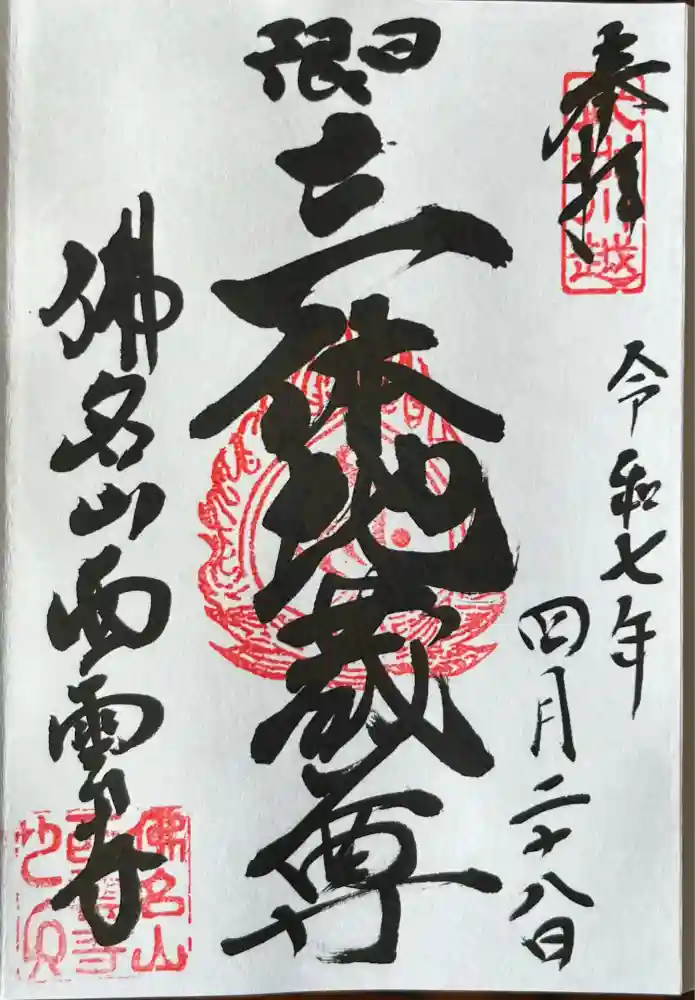 奉拝
武州川越
令和七年
四月二十八日
日限
三体地蔵尊
佛名山西雲寺
佛名山
西雲寺
之印